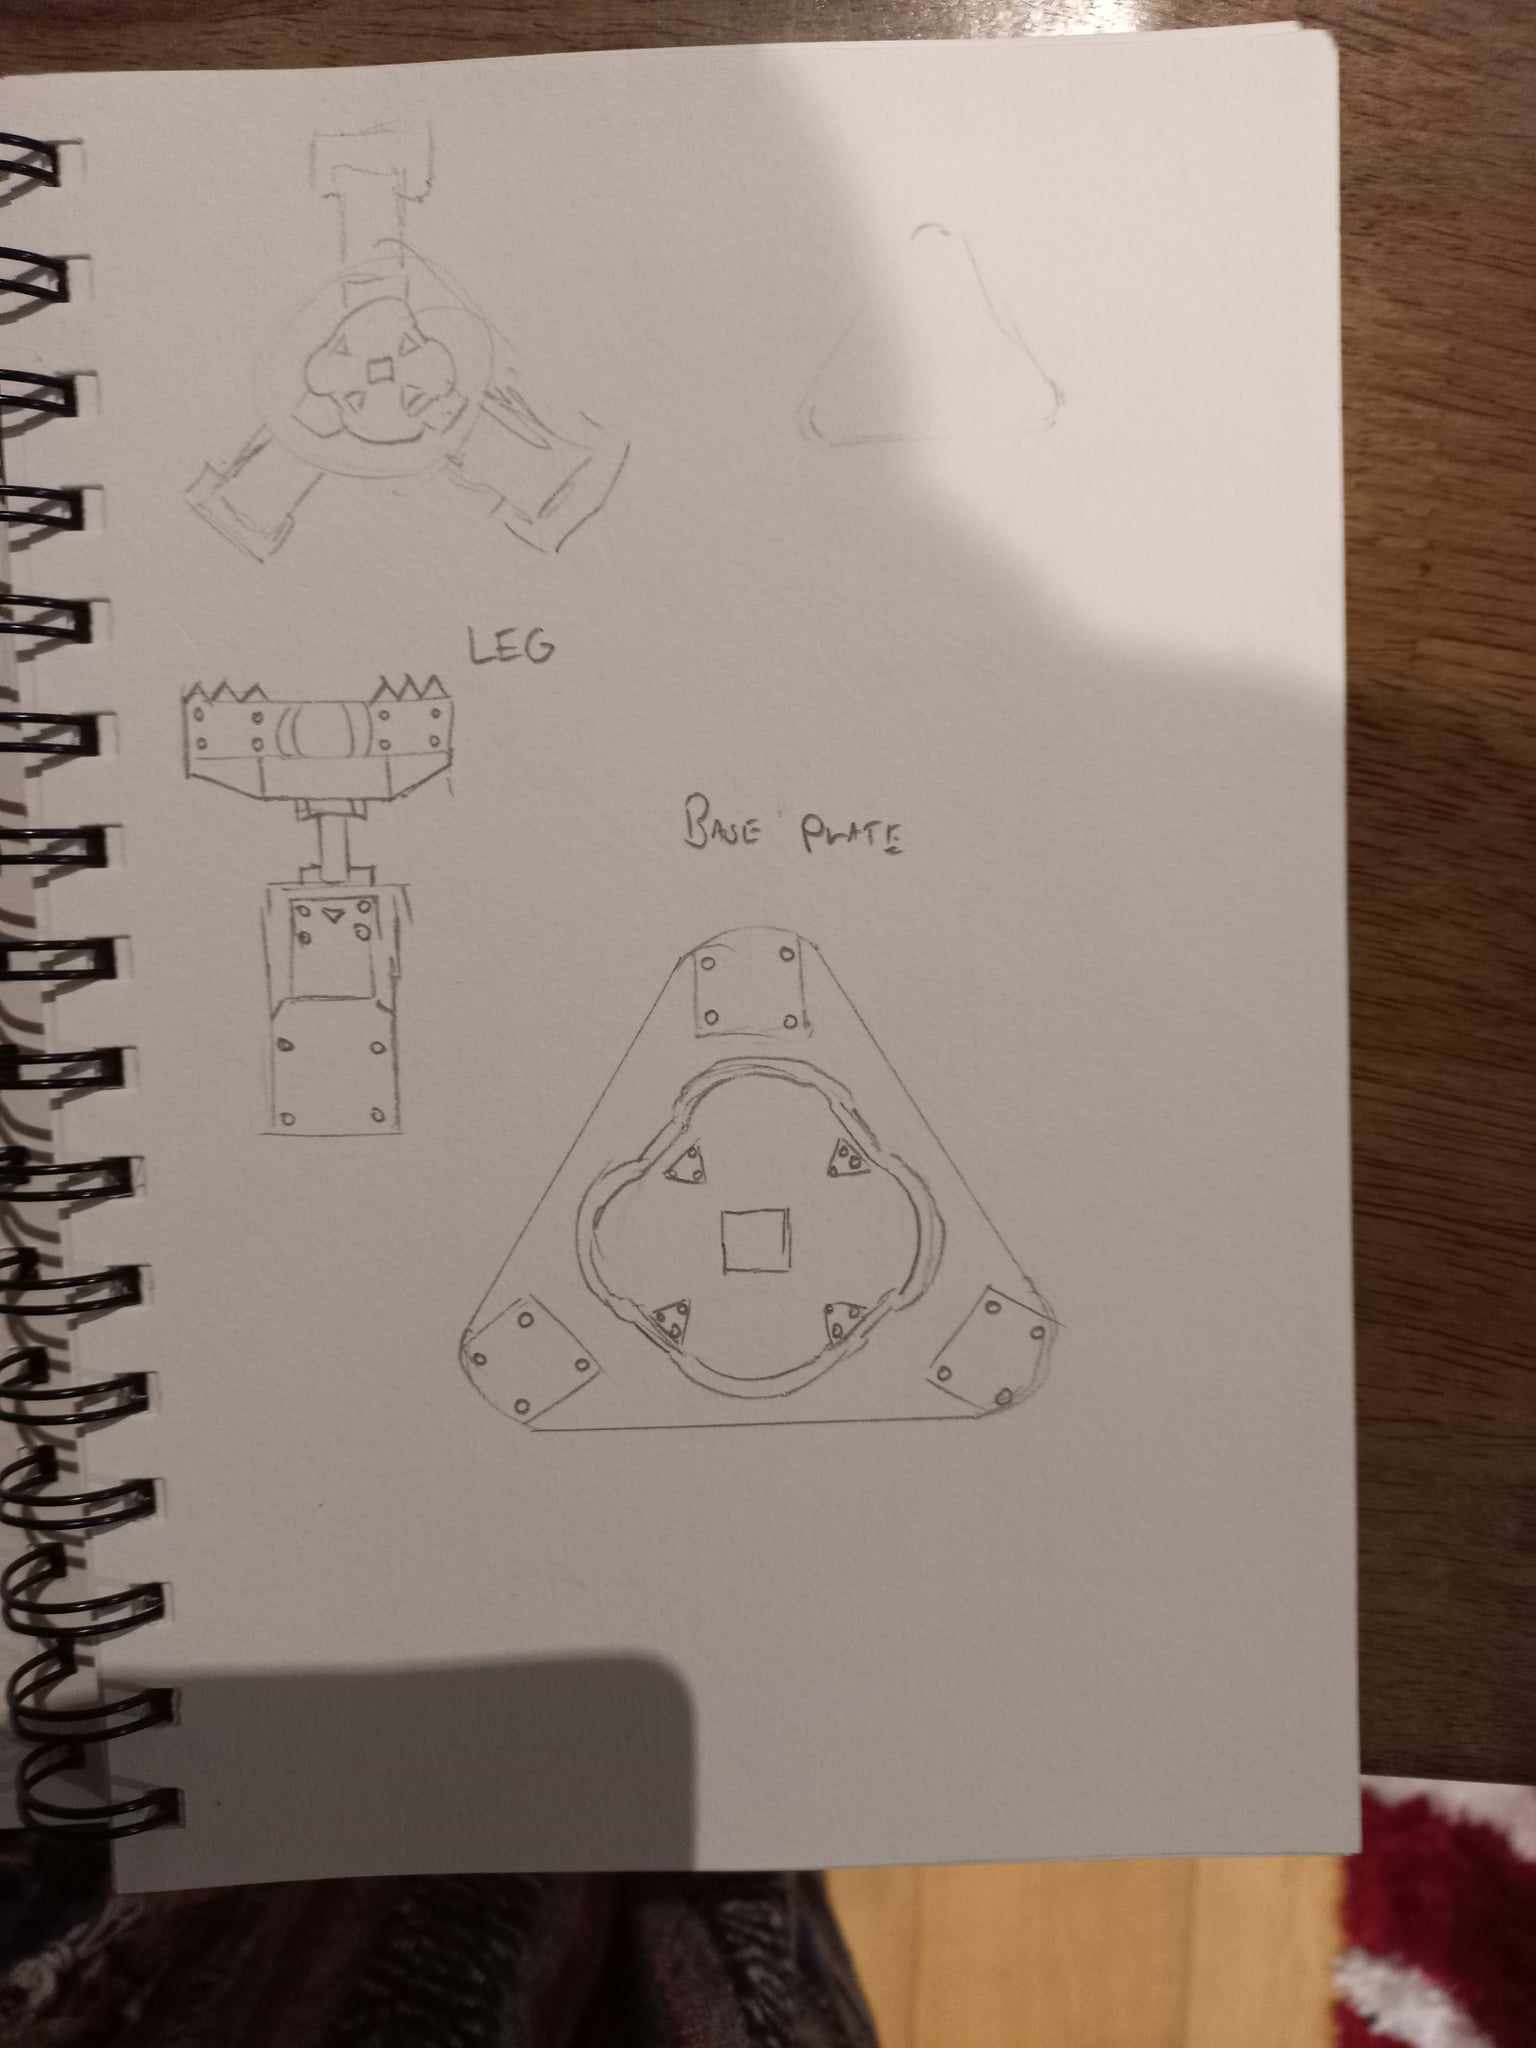 LEG
BASE PLATE